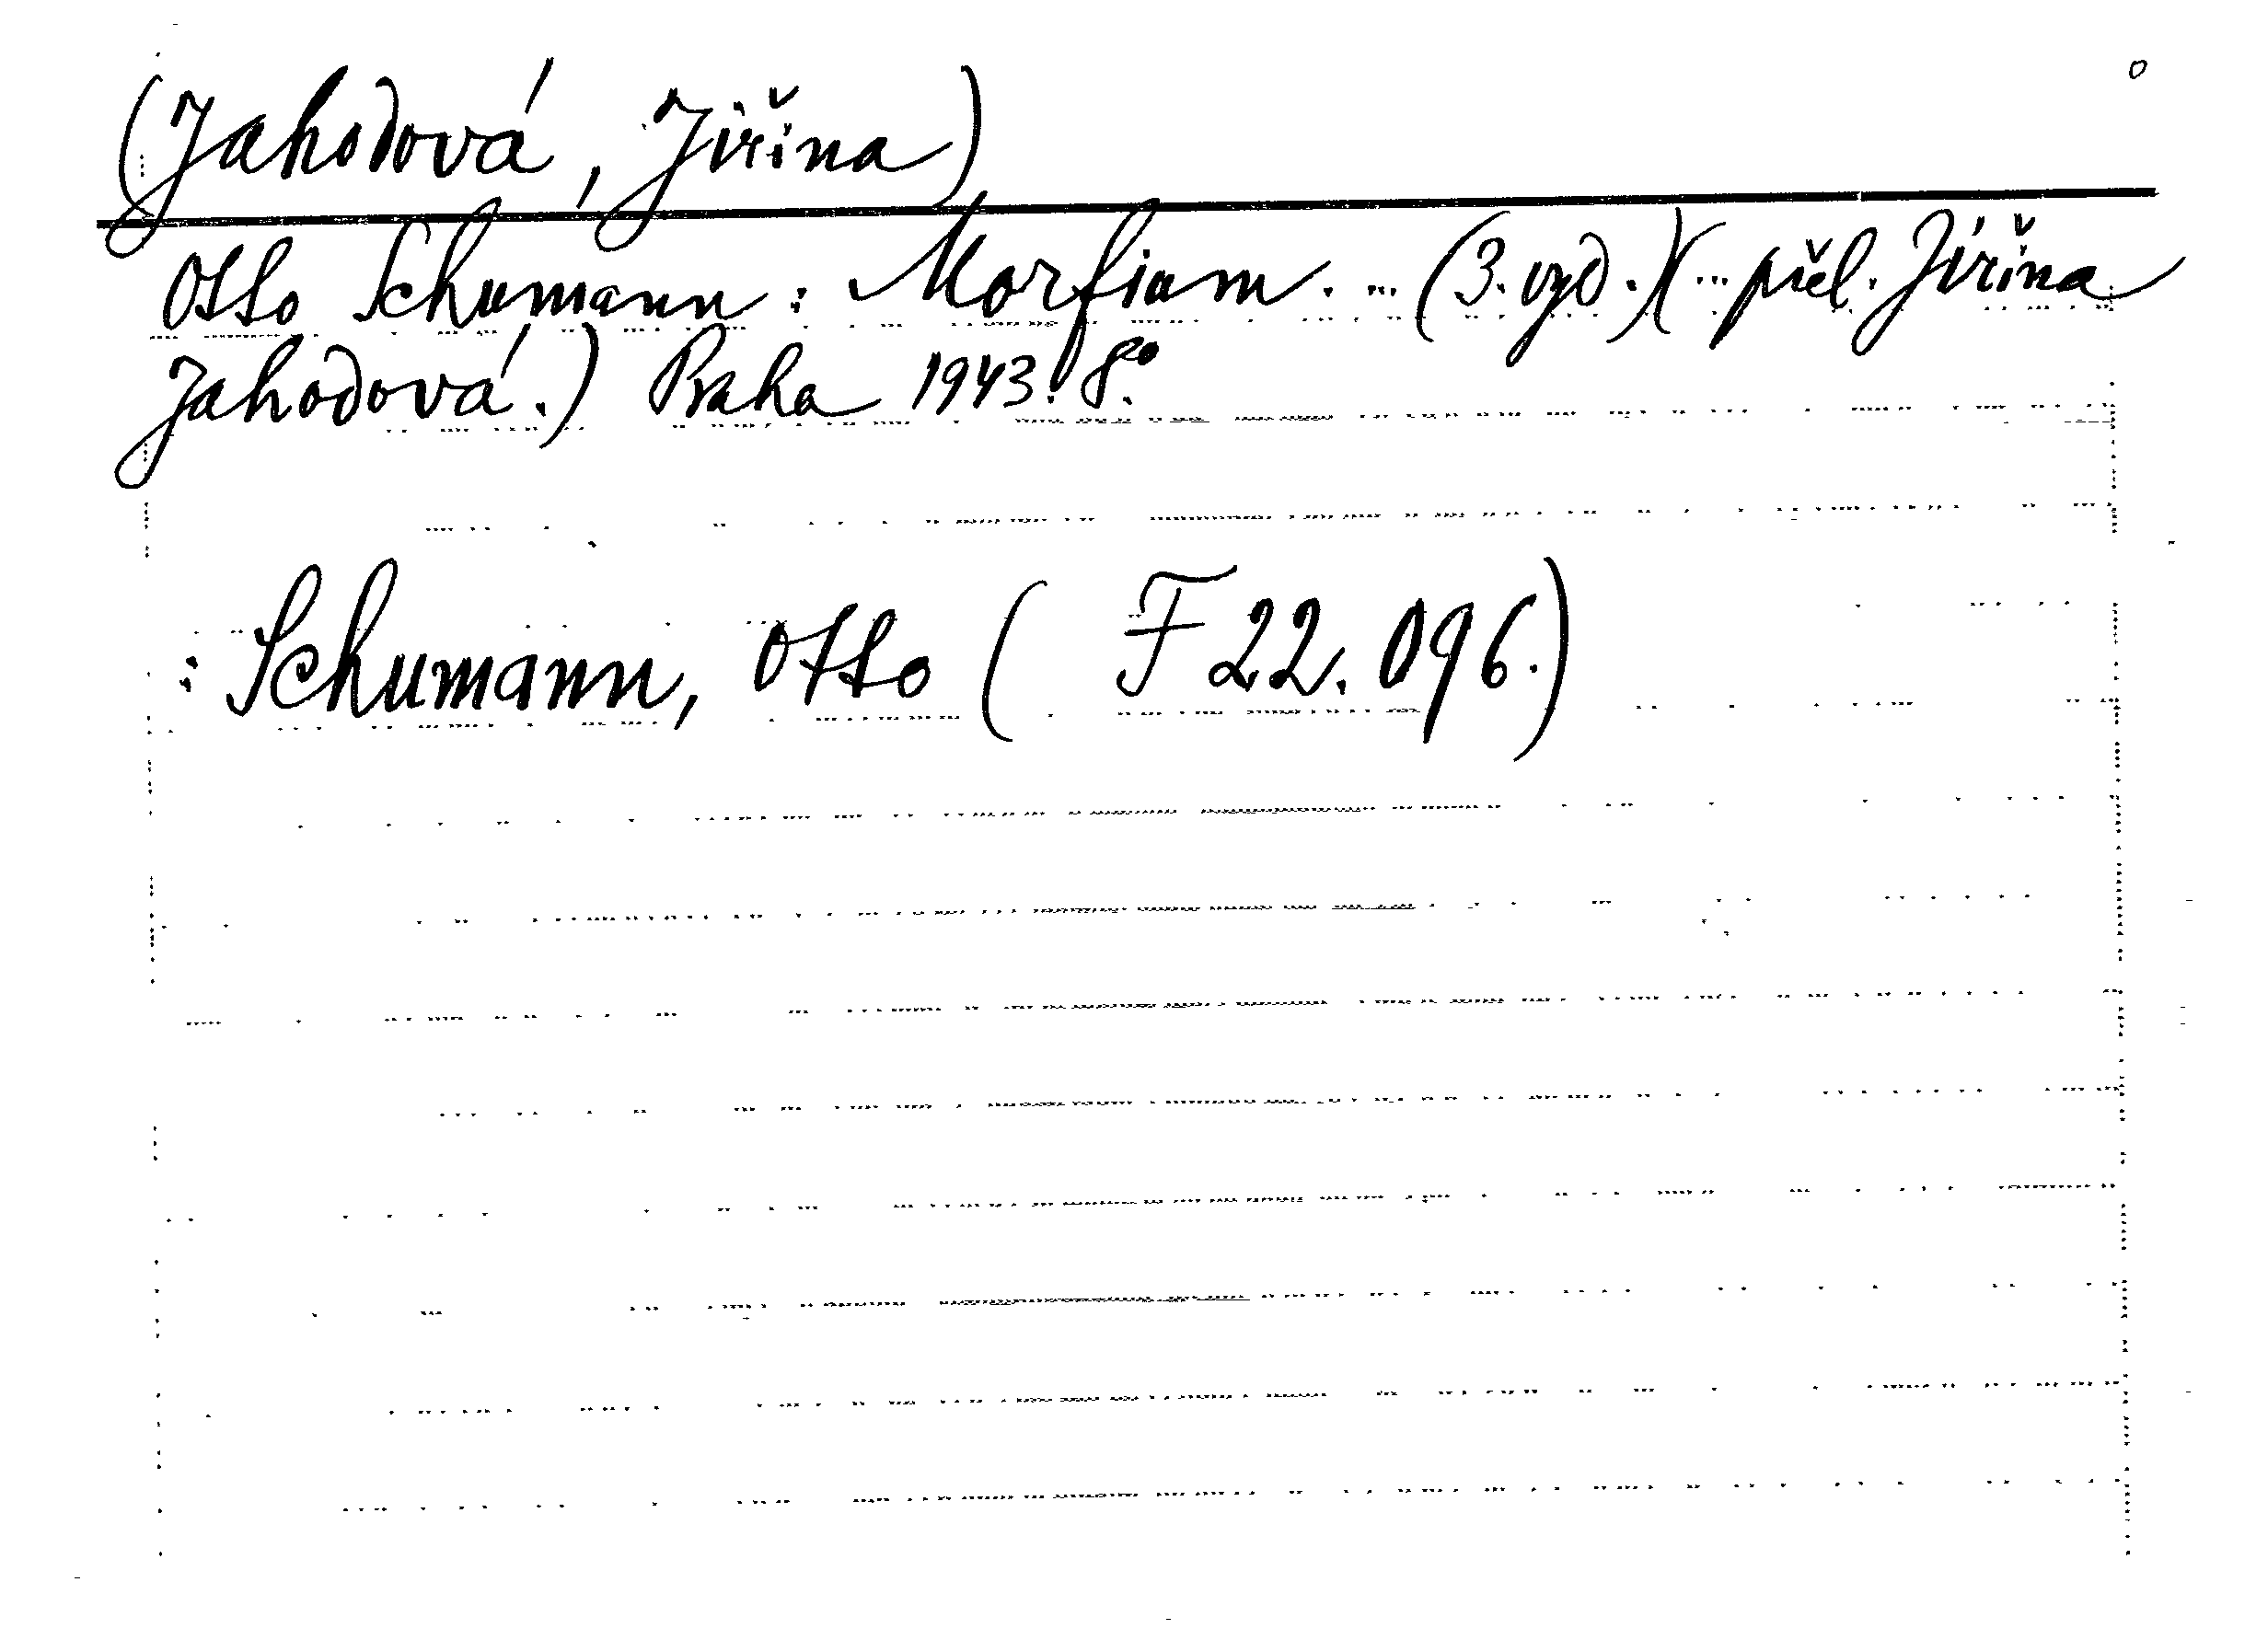 (Jahodová, Jiřina)
Otto Schumann: Morfium. ... (3. vyd.)(... přel. Jiřina
Jahodová.) Praha 1943. 8°.
: Schumann, Otto ( F 22.096.)